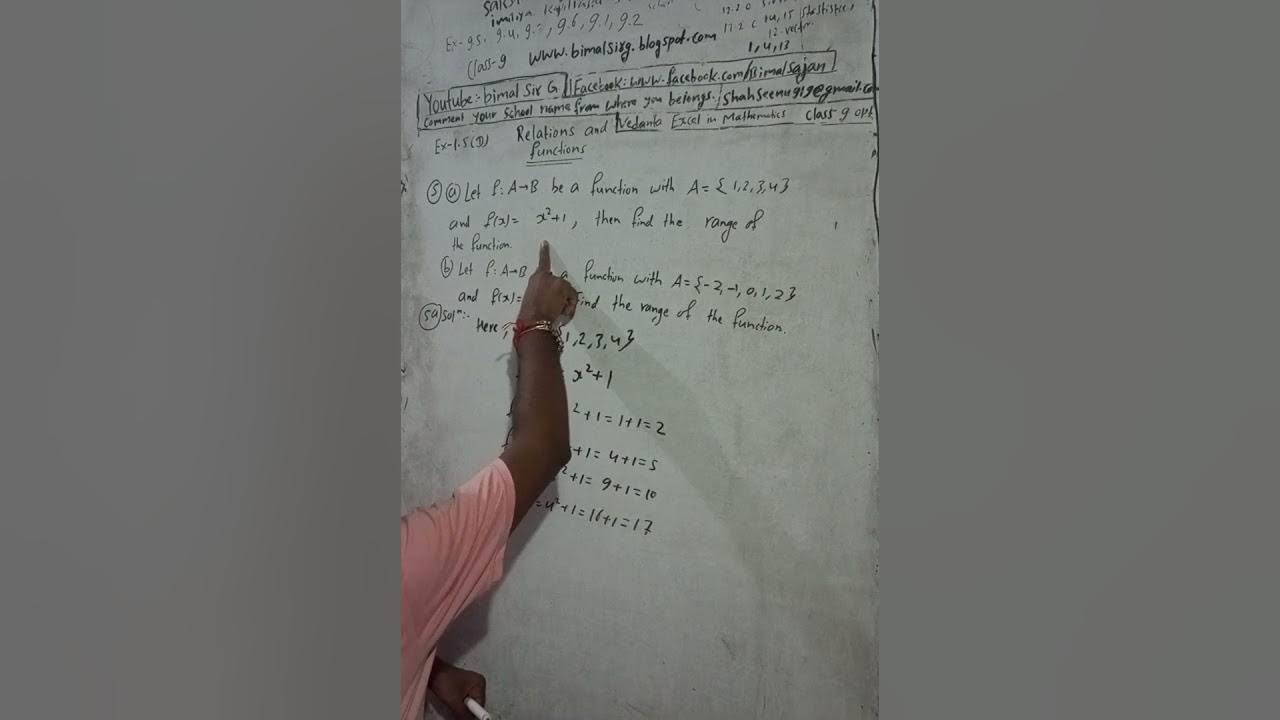 Ex-9.5, 9.4, 9. , 9.6, 9.1, 9.2
Class-9 www.bimalsirg.blogspot.com
12. vector
1, 4, 13
Youtube:- bimal Sir G Facebook: www.facebook.com/BimalSajan
Comment your School name from where you belongs. shahseenu919@gmail.com
Ex-1.5(D) Relations and Vedanta Excel in Mathematics class 9 opt
functions
5 a Let f: A→B be a function with A = { 1, 2, 3, 4}
and f(x) = x²+1, then find the range of
the function.
b Let f: A→B a function with A = {-2, -1, 0, 1, 2}
and f(x) = Find the range of the function.
5a Solⁿ:-
Here, 1, 2, 3, 4}
x²+1
²+1 = 1+1 = 2
+1 = 4+1 = 5
²+1 = 9+1 = 10
= 4²+1 = 16+1 = 17